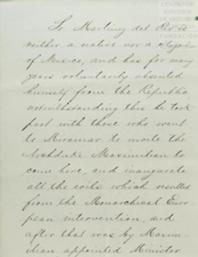 Sr Martinez del Rio is
neither a native nor a
of Mexico, and has for many
years voluntarily absented
himself from the Republic
notwithstanding this he took
part with those who went
to Miramar to invite the
Archduke Maximilian to
come here, and inaugurate
all the evils which resulted
from the Monarchical Euro
pean intervention, and
after that was by Maxim
ilian appointed Minister